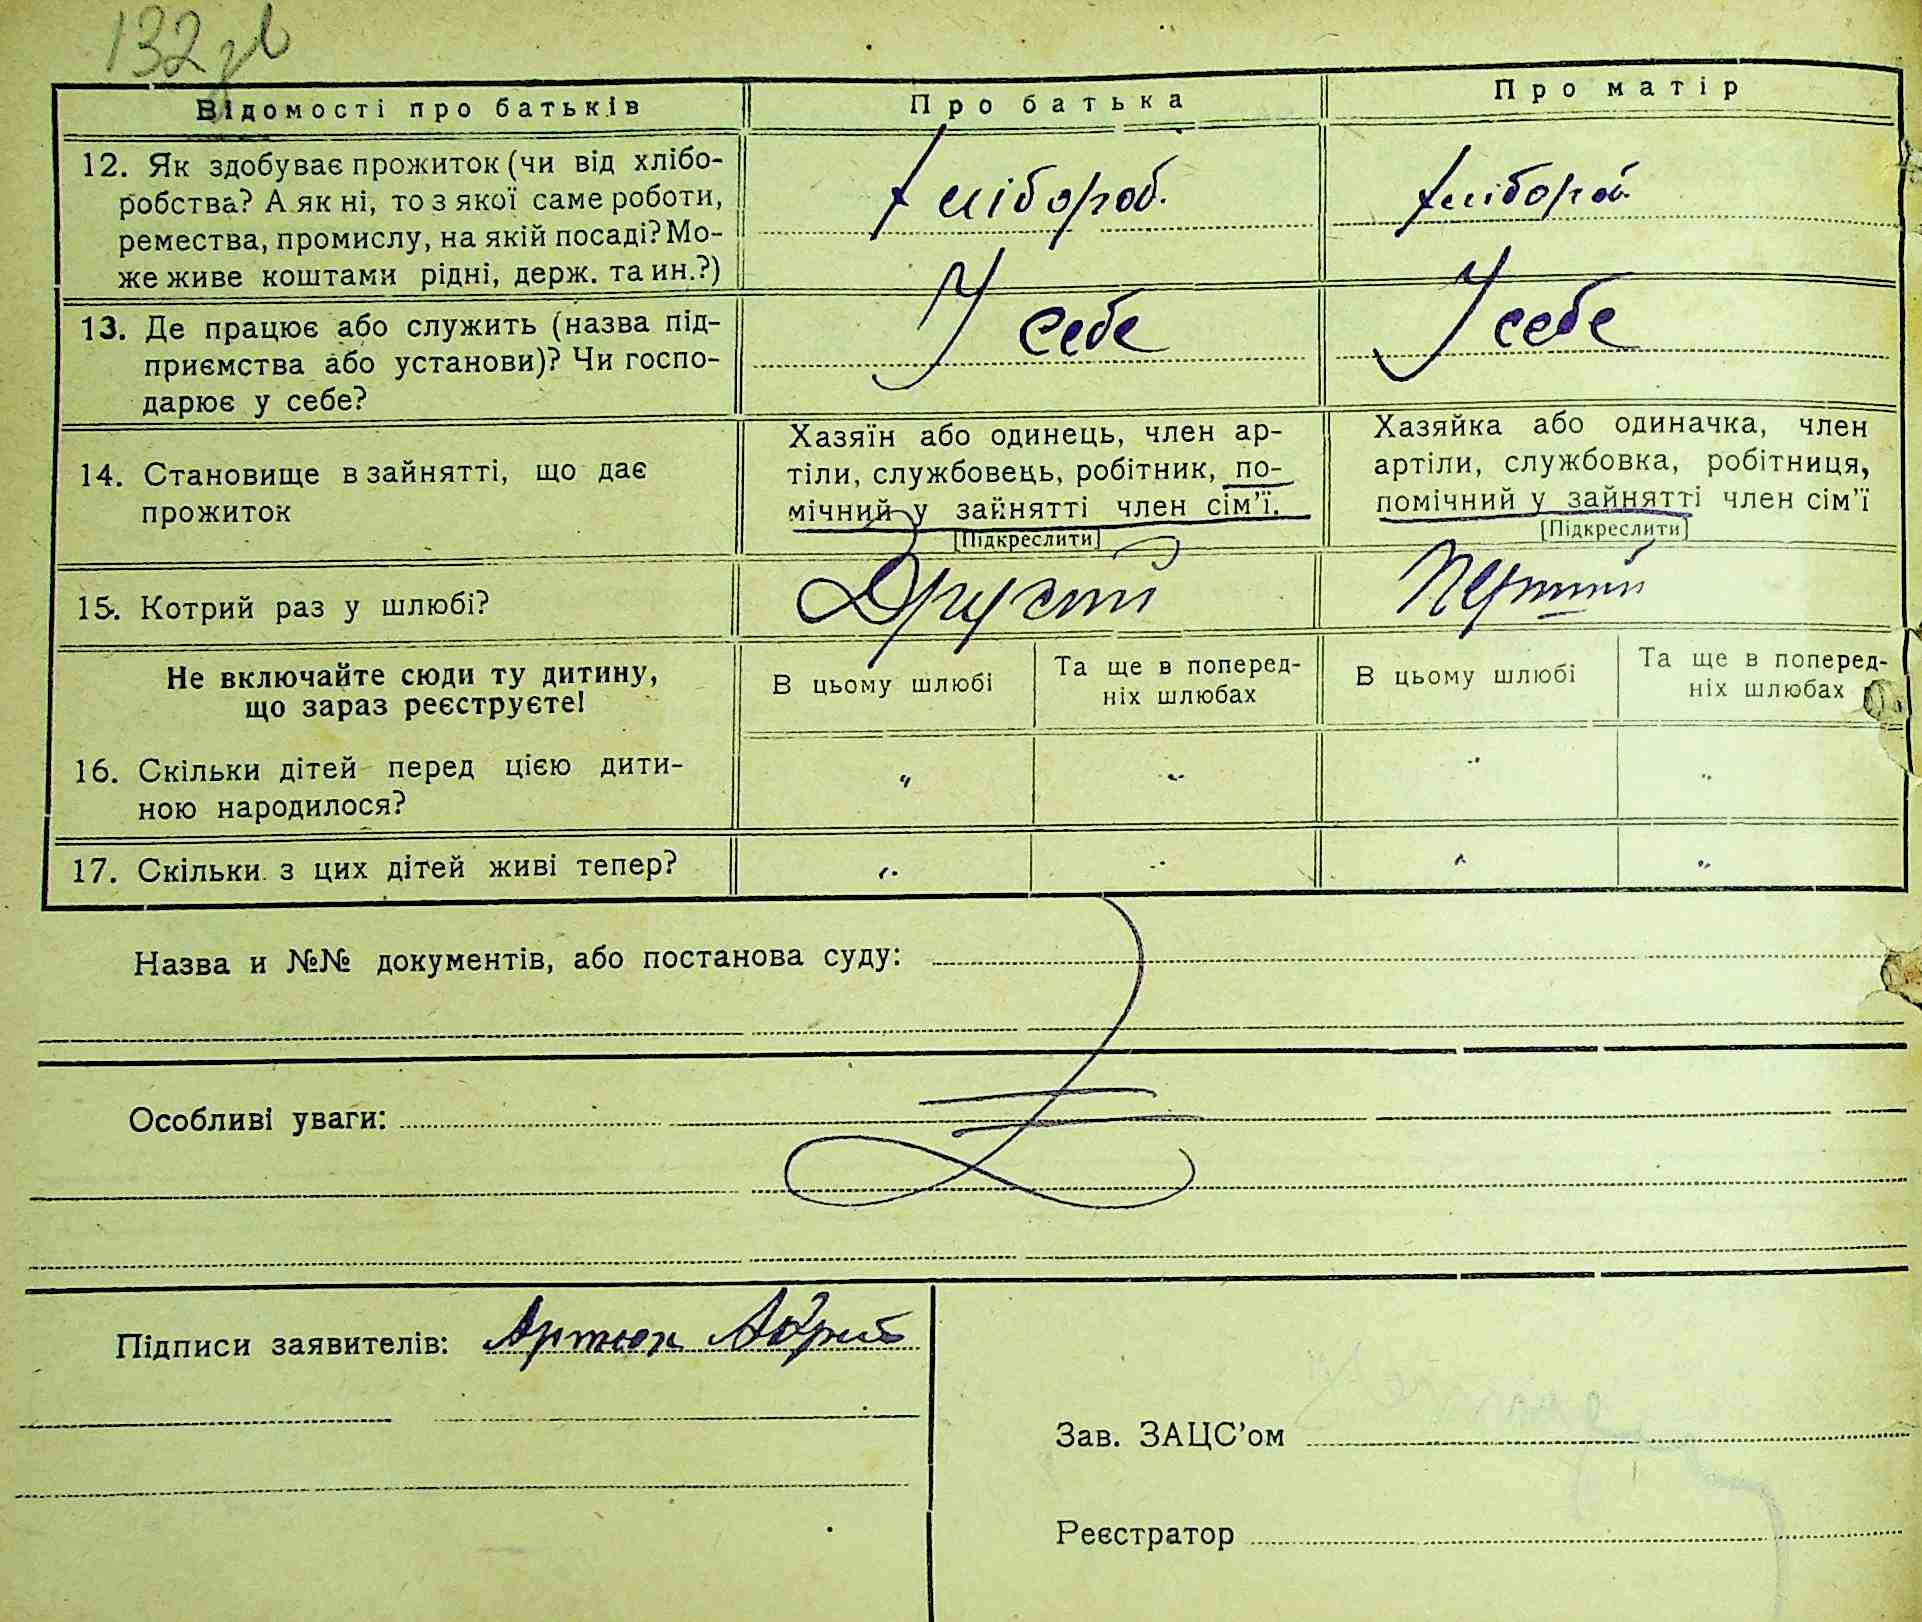 132 зв
Відомості про батьків
Про батька
Про матір
12. Як здобуває прожиток (чи від хлібо-
робства? А як ні, то з якої саме роботи,
ремества, промислу, на якій посаді? Мо-
же живе коштами рідні, держ. та ин.?)
Хлібороб.
Хлібороб
13. Де працює або служить (назва під-
приємства або установи)? Чи госпо-
дарює у себе?
У себе
У себе
14. Становище в зайнятті, що дає
прожиток
Хазяїн або одинець, член ар-
тіли, службовець, робітник, по-
мічний у зайнятті член сім'ї.
[Підкреслити]
Хазяйка або одиначка, член
артіли, службовка, робітниця,
помічний у зайнятті член сім'ї
[Підкреслити]
15. Котрий раз у шлюбі?
Другий
Перший
Не включайте сюди ту дитину,
що зараз реєструєте!
В цьому шлюбі
Та ще в поперед-
ніх шлюбах
В цьому шлюбі
Та ще в поперед-
ніх шлюбах
16. Скільки дітей перед цією дити-
ною народилося?
" " " "
17. Скільки з цих дітей живі тепер?
" " " "
Назва и №№ документів, або постанова суду:
Особливі уваги:
Підписи заявителів: Артюх
Зав. ЗАЦС'ом
Реєстратор